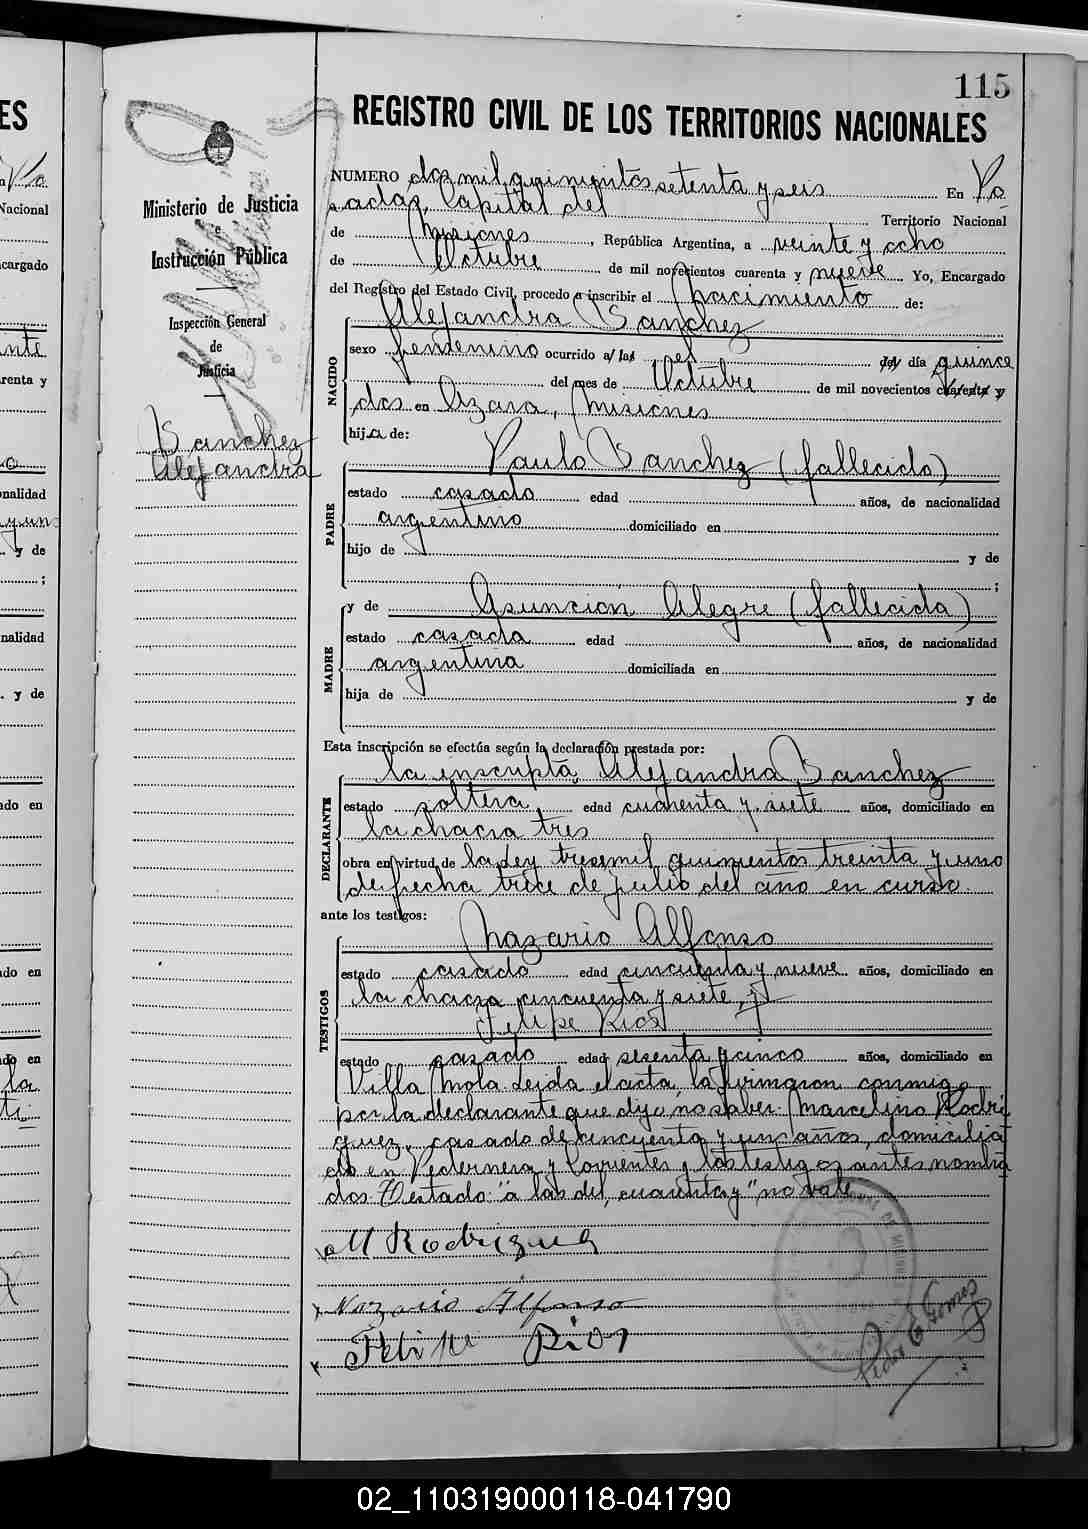 115
REGISTRO CIVIL DE LOS TERRITORIOS NACIONALES
Ministerio de Justicia
e
Instrucción Pública
Inspección General
de
Justicia
Sanchez
Alejandra
NUMERO dos mil quinientos setenta y seis En Po
sadas, Capital del Territorio Nacional
de Misiones, República Argentina, a veinte y ocho
de Octubre de mil novecientos cuarenta y nueve Yo, Encargado
del Registro del Estado Civil, procedo a inscribir el Nacimiento de:
Alejandra Sanchez
NACIDO
sexo femenino ocurrido a/las el del día quince
del mes de Octubre de mil novecientos cuarenta y
dos en Azara, Misiones
hija de:
Paulo Sanchez (fallecido)
PADRE
estado casado edad años, de nacionalidad
argentino domiciliado en
hijo de y de
;
y de Asunción Alegre (fallecida)
MADRE
estado casada edad años, de nacionalidad
argentina domiciliada en
hija de y de
Esta inscripción se efectúa según la declaración prestada por:
la inscripta Alejandra Sanchez
DECLARANTE
estado soltera, edad cuarenta y siete años, domiciliado en
la chacra tres
obra en virtud de la Ley trece mil quinientos treinta y uno
de fecha trece de julio del año en curso.
ante los testigos:
Nazario Alfonso
TESTIGOS
estado casado edad cincuenta y nueve años, domiciliado en
la chacra cincuenta y siete, y
Felipe Rios
estado casado edad sesenta y cinco años, domiciliado en
Villa Mola. Leida el acta, la firmaron conmigo
por la declarante que dijo no saber. Marcelino Rodri
guez, casado de cincuenta y un años, domicilia
do en Pedernera y Corrientes y los testigos antes nombra
dos Testado: "a las del, cuarenta y" no vale
M Rodriguez
Nazario Alfonso
Felipe Rios
02_110319000118-041790